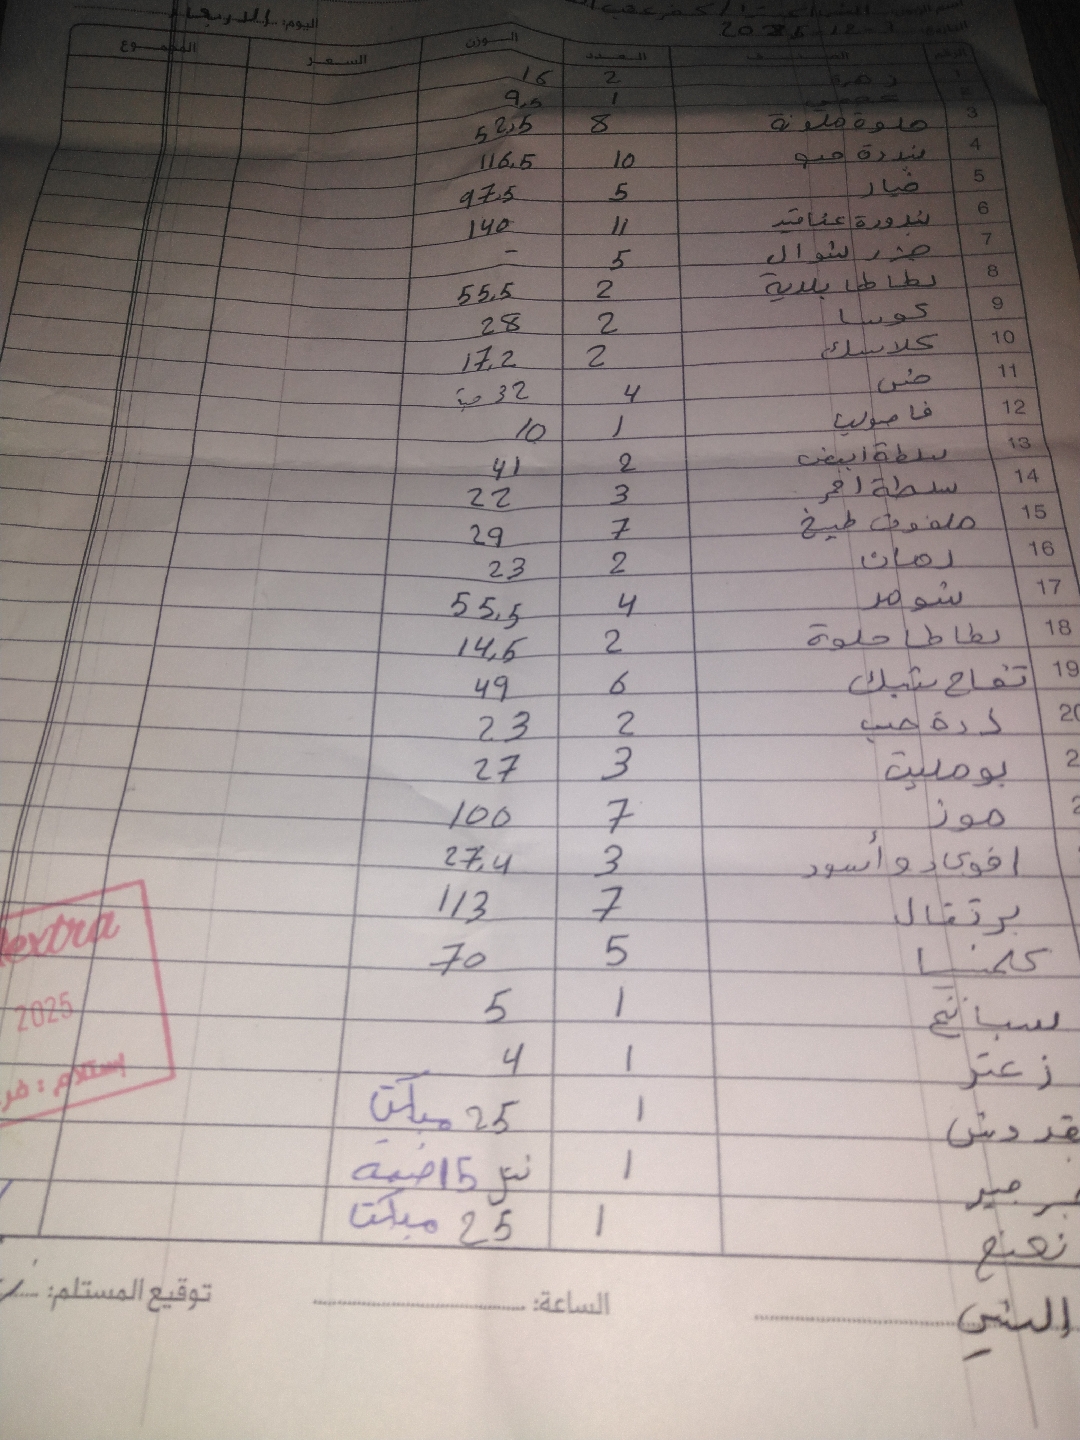 اليوم: الاربعاء
التاريخ:
الرقم الصنف العدد الوزن السعر المجموع
1 زهرة 2 16
2 1 9,5
3 حلوة ملونة 8 52,5
4 بندورة حب 10 116,5
5 خيار 5 97,5
6 بندورة عناقيد 11 140
7 جزر شوال 5 -
8 بطاطا بلدية 2 55,5
9 كوسا 2 28
10 كلاسك 2 17,2
11 خس 4 32 حبة
12 فاصوليا 1 10
13 سلطة ابيض 2 41
14 سلطة احمر 3 22
15 ملفوف طبيخ 7 29
16 رمان 2 23
17 شومر 4 55,5
18 بطاطا حلوة 2 14,5
19 تفاح شبك 6 49
20 درة حب 2 23
2 بوملیت 3 27
2 موز 7 100
افوكادو أسود 3 27,4
برتقال 7 113
كلمنتينا 5 70
سبانخ 1 5
زعتر 1 4
بقدونس 1 25 مباكت
جرجير 1 15 ضمة
نعنع 1 25 مباكت
extra
2025
إستلام :
الساعة: توقيع المستلم: